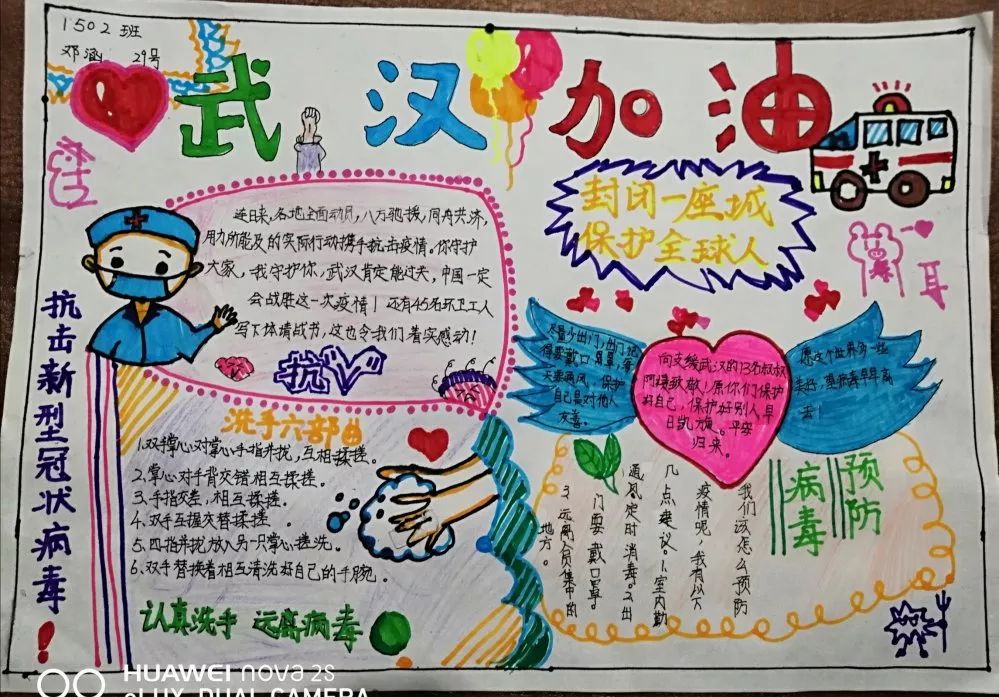 1502班
邓涵 29号
武汉加油
封闭一座城
保护全球人
连日来,各地全面动员,八方驰援,同舟共济,
用力所能及的实际行动携手抗击疫情。你守护
大家,我守护你,武汉肯定能过关,中国一定
会战胜这一次疫情!还有45名环卫工人
写下体请战书,这也令我们着实感动!
抗
抗击新型冠状病毒!
尽量少出门,出门记
得要戴口罩,每
天要通风,保护
自己是对他人
友善。
向支援武汉的13名叔叔
阿姨致敬!原你们保护
好自己,保护好别人,早
日凯旋。平安
归来。
愿这个世界多一些
美好,望病毒早早离
去!
洗手六部曲
1.双手掌心对掌心手指并拢,互相揉搓。
2.掌心对手背交错相互揉搓。
3.手指交差,相互揉搓。
4.双手互握交替揉搓。
5.四指并拢放入另一只掌心搓洗。
6.双手替换着相互清洗好自己的手腕。
认真洗手 远离病毒
预防
病毒
我们该怎么预防
疫情呢,我有以下
几点建议。1室内勤
通风定时消毒。2出
门要戴口罩。
3远离人员集中的
地方。
耳
HUAWEI nova 2s
DUAL CAMERA